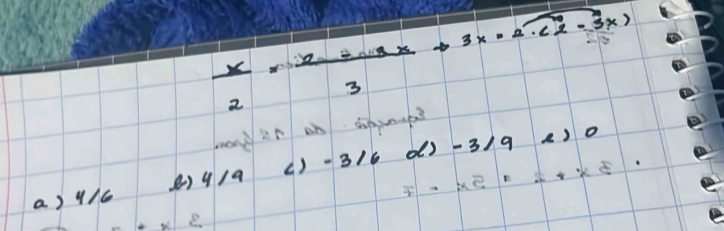 x/2 = 2 - 3x/3 → 3x = 2 · (2 - 3x)
a) 4/6 b) 4/9 c) -3/6 d) -3/9 e) 0